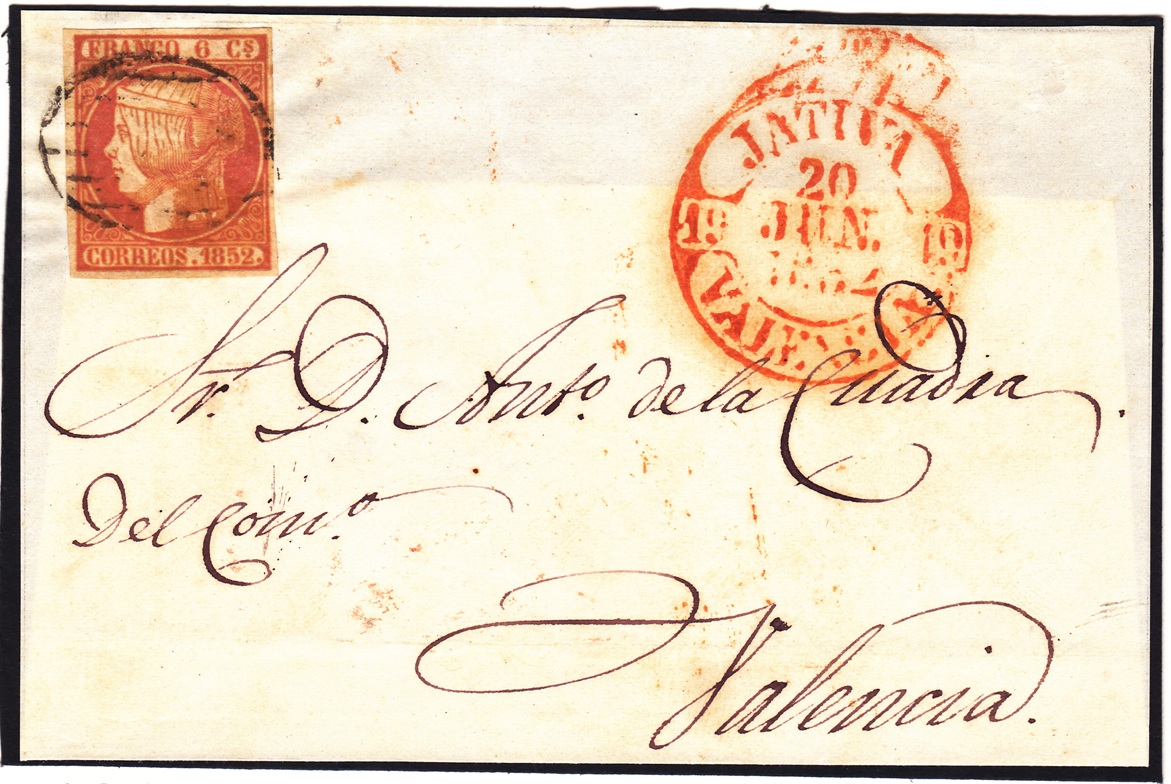 FRANCO 6 Cs
CORREOS. 1852.
JATIVA
20
JUN.
1852
19 19
VALENCIA
Sr. D. Anto. de la Cuadra.
Del Como.
Valencia.